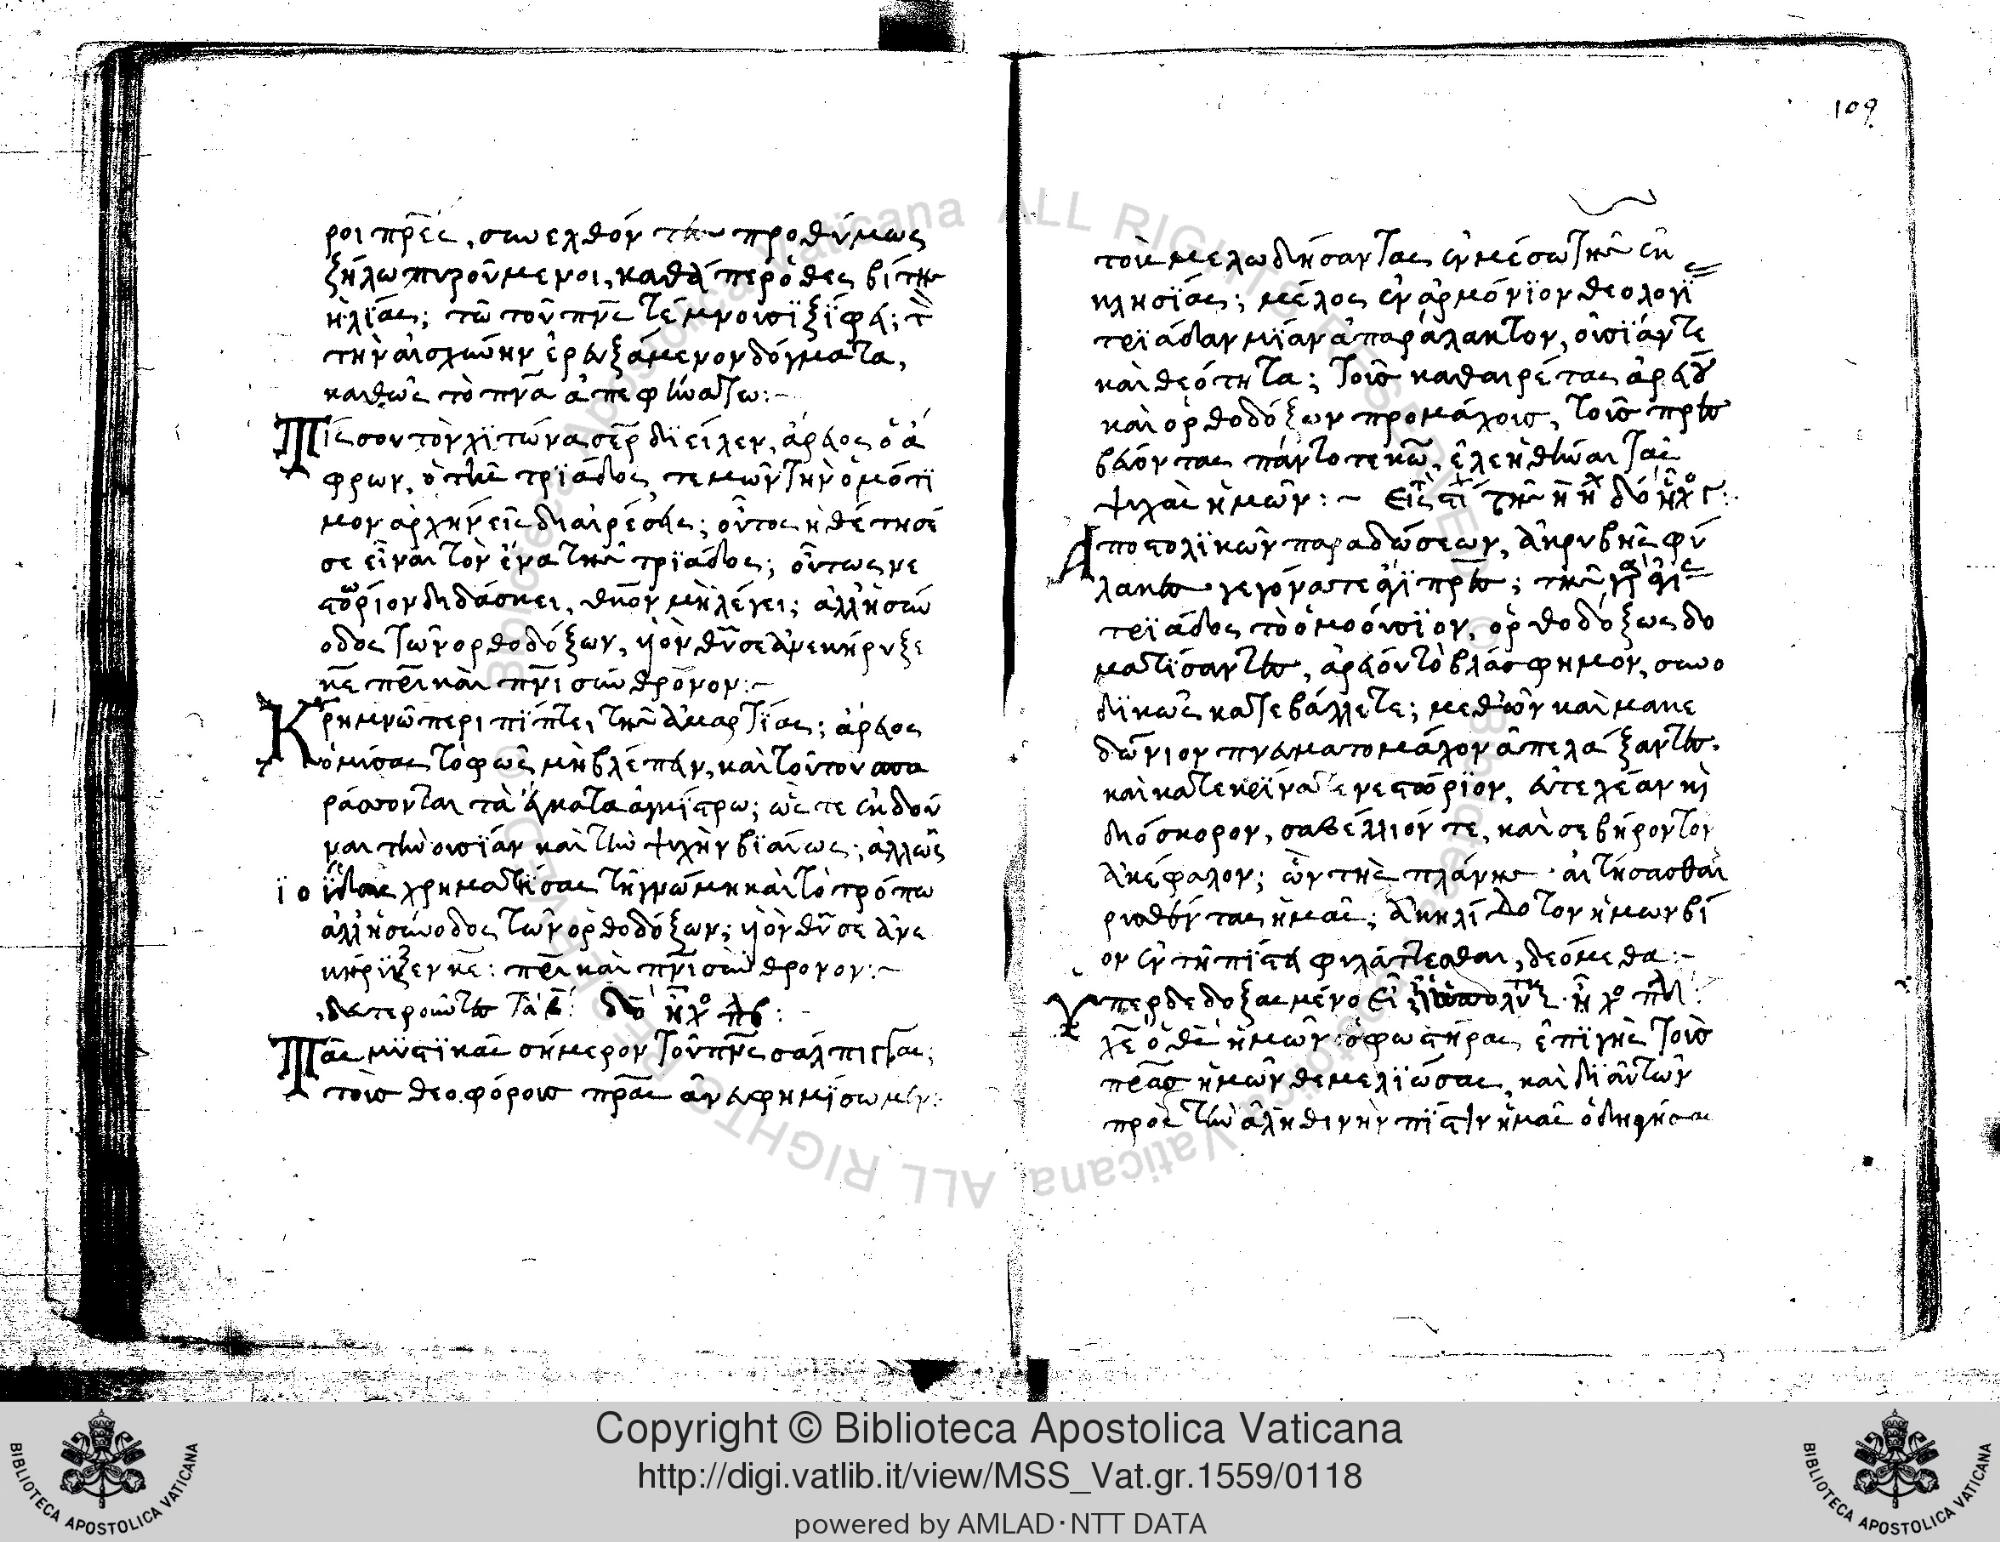 ροι πρές, συνελθόντων προθύμως
ζήλω πυρούμενοι, καθάπερ ὁ θεσβίτης
ἠλίας; τῶ τοῦ πνς τέμνουσι ξίφει; τὸν
τὴν αἰσχύνην ἐρευξάμενον δόγματα,
καθῶς τὸ πνα ἀπεφήνατο:-
Τίς σου τὸν χιτῶνα σερ διείλεν, ἄρειος ὁ ἄ
φρων, ὁ τῆς τριάδος, τεμὼν τὴν ὁμότι
μον ἀρχὴν εἰς διαιρέσεις; οὗτος ἠθέτησέ
σε εἶναι τὸν ἕνα τῆς τριάδος; οὗτως νε
στόριον διδάσκει, θκον μὴ λέγει; ἀλλ' ἡ σύν
οδος τῶν ορθοδόξων, υἱὸν θῦ σε ἀνεκήρυξε
κε πρι καὶ πνι σύνθρονον:-
Κρημνῶ περιπίπτει τῆς ἁμαρτίας; ἄρειος
ὁ μύσας τὸ φῶς μὴ βλέπειν, καὶ τοῦτον σπα
ράσσονται τὰ ἔγκατα ἀγκίστρω; ὥς τε ἐκδοῦ
ναι τὴν οὐσίαν καὶ τὴν ψυχὴν βιαίως; ἄλλως
ϊούδας χρηματίσας τῇ γνώμη καὶ τὸ τρόπω
ἀλλ' ἡ σύνοδος τῶν ὀρθοδόξων; υἱὸν θῦ σε ἀνε
κήρυξεν κε: πρι καὶ πνι σύνθρονον:-
Τὰς μυστικὰς σήμερον τοῦ πνς σάλπιγγας;
τοὺς θεοφόρους πρας ἀνευφημίσωμεν:
109
τοὺς μελωδήσαντας ἐν μέσω τῆς ἐκ
κλησίας; μέλος ἐναρμόνιον θεολογί
τριάδαν μίαν ἀπαράλακτον, οὐσίαν τε
καὶ θεότητα; τοὺς καθαιρέτας ἀρείου
καὶ ὀρθοδόξων προμάχους, τοὺς πρεσ
βεύοντας πάντοτε κω, ἐλεηθῆναι τὰς
ψυχὰς ἡμῶν:-
Αποστολικῶν παραδώσεων, ἀκρυβῆς φύ
λακες γεγόνατε ἅγι πρς; τῆς γὰρ ἁγίας
τριάδος τὸ ὁμοούσιον, ὀρθοδόξως δο
ματίσαντες, ἀρειόν τὸ βλάσφημον, συνο
δικῶς κατεβάλλετε; μεθ' ὧν καὶ μακε
δώνιον πνευματομάχον ἀπελάξαντες.
καὶ κατεκρίνατε νεστόριον, ευτεχέαν κὶ
διόσκορον, σαβέλλιόν τε, καὶ σεβήρον τὸν
ἀκέφαλον; ὧν τῆς πλάνης αἰτήσασθαι
ρυσθέντας ἡμᾶς; ἀκηλίδοτον ἡμων βί
ον ἐν τῆ πίστει φυλάττεσθαι, δεόμεθα:-
Υπερδεδοξασμένος εἶ
χε ὁ θς ἡμῶν ὁ φωστήρας ἐπὶ γῆς τοὺς
πρας ἡμῶν θεμελιώσας, καὶ δι' αὐτῶν
πρὸς τὴν ἀληθινὴν πίστιν ἡμᾶς ὁδηγήσας
Copyright © Biblioteca Apostolica Vaticana
http://digi.vatlib.it/view/MSS_Vat.gr.1559/0118
powered by AMLAD·NTT DATA
BIBLIOTECA APOSTOLICA VATICANA
BIBLIOTECA APOSTOLICA VATICANA